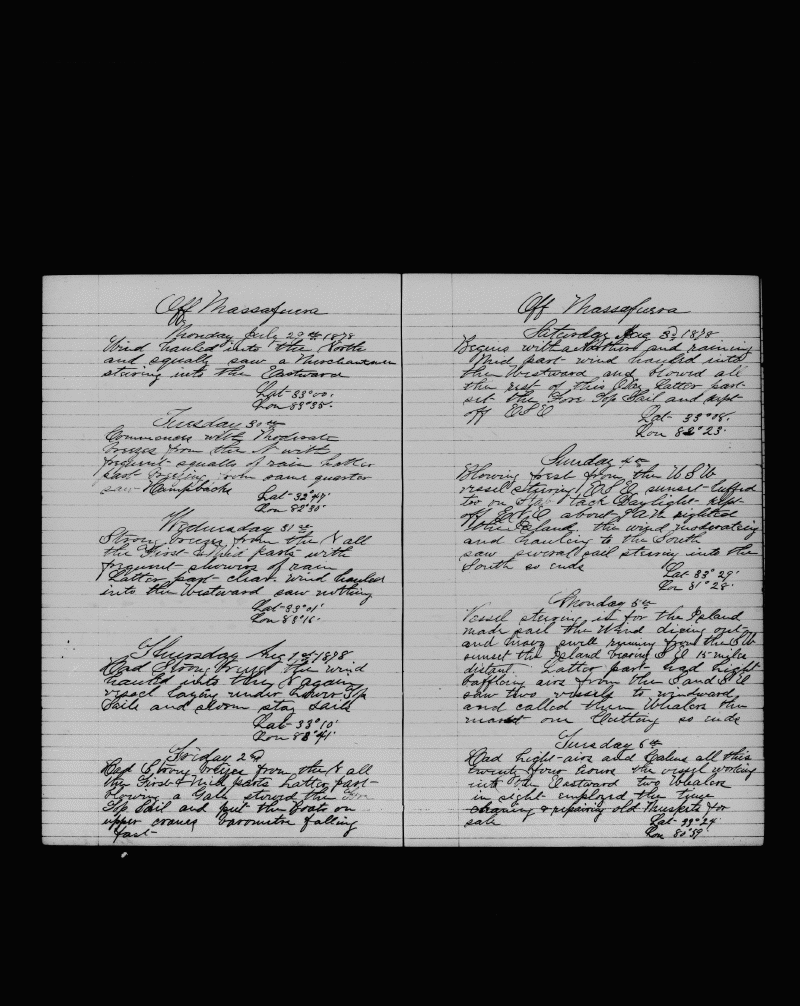 Off Massafuera
Monday July 29th 1878
Wind hauled into the North
and squally saw a Merchantman
steering into the Eastward
Lat 33°00'
Lon 83°35'
Tuesday 30th
Commences with Moderate
breezes from the N with
frequent squalls of rain latter
part breezing from same quarter
saw Humpbacks
Lat 32°47'
Lon 82°30'
Wednesday 31st
Strong breezes from the N all
the First & Mid parts with
frequent showers of rain
Latter part clear wind hauled
into the Westward saw nothing
Lat 33°01'
Lon 83°16'
Thursday Aug 1st 1878
Had Strong breezes the wind
hauled into the N again
vessel laying under lower Top
Sails and storm stay sails
Lat 33°10'
Lon 83°41'
Friday 2d
Had Strong breezes from the N all
the First & Mid parts Latter part
blowing a Gale stowed the Fore
Top Sail and put the Boats on
upper cranes barometer falling
fast
Off Massafuera
Saturday Aug 3d 1878
Begins with and raining
Mid part wind hauled into
the Westward and blowed all
the rest of this Day Latter part
set the Fore Top Sail and kept
off ESE
Lat 33°08'
Lon 82°23'
Sunday 4th
Blowing fresh from the WSW
vessel steering ESE sunset luffed
too on tack Daylight kept
off about 7 AM sighted
the Island the wind moderating
and hauling to the South
saw several sail steering into the
South so ends
Lat 33°29'
Lon 81°28'
Monday 5th
Vessel steering in for the Island
made sail the Wind dieing out
and heavy swell running from the SW
sunset the Island bearing 15 miles
distant Latter part had light
baffling airs from the S and SE
saw two vessels to windward
and called them Whalers the
nearest one Cutting so ends
Tuesday 6th
Had light airs and Calms all this
twenty four hours the vessel working
into the Eastward two Whalers
in sight employed the time
cleaning & repairing old Muskets for
sale
Lat 33°24'
Lon 80°59'